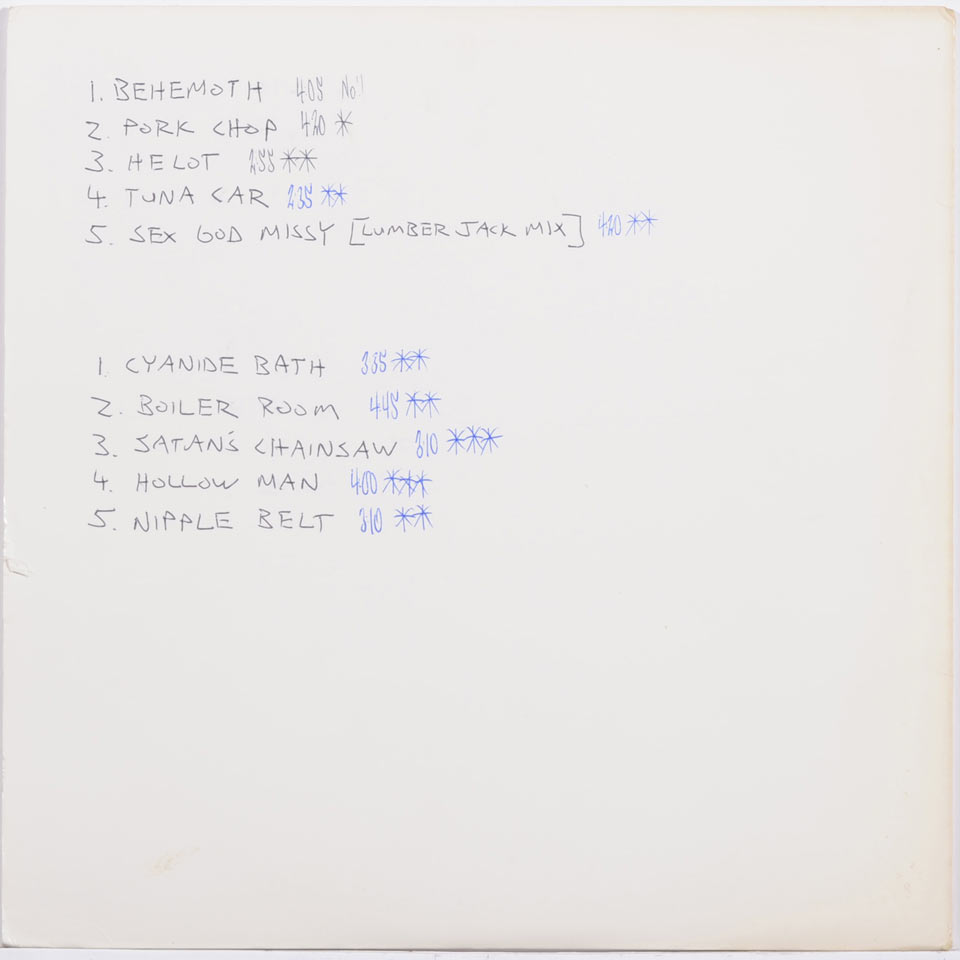 1. BEHEMOTH 405 No!
2. PORK CHOP 420 *
3. HELOT 255 **
4. TUNA CAR 235 **
5. SEX GOD MISSY [LUMBER JACK MIX] 420 **
1. CYANIDE BATH 335 **
2. BOILER ROOM 445 **
3. SATAN'S CHAINSAW 310 ***
4. HOLLOW MAN 400 ***
5. NIPPLE BELT 310 **